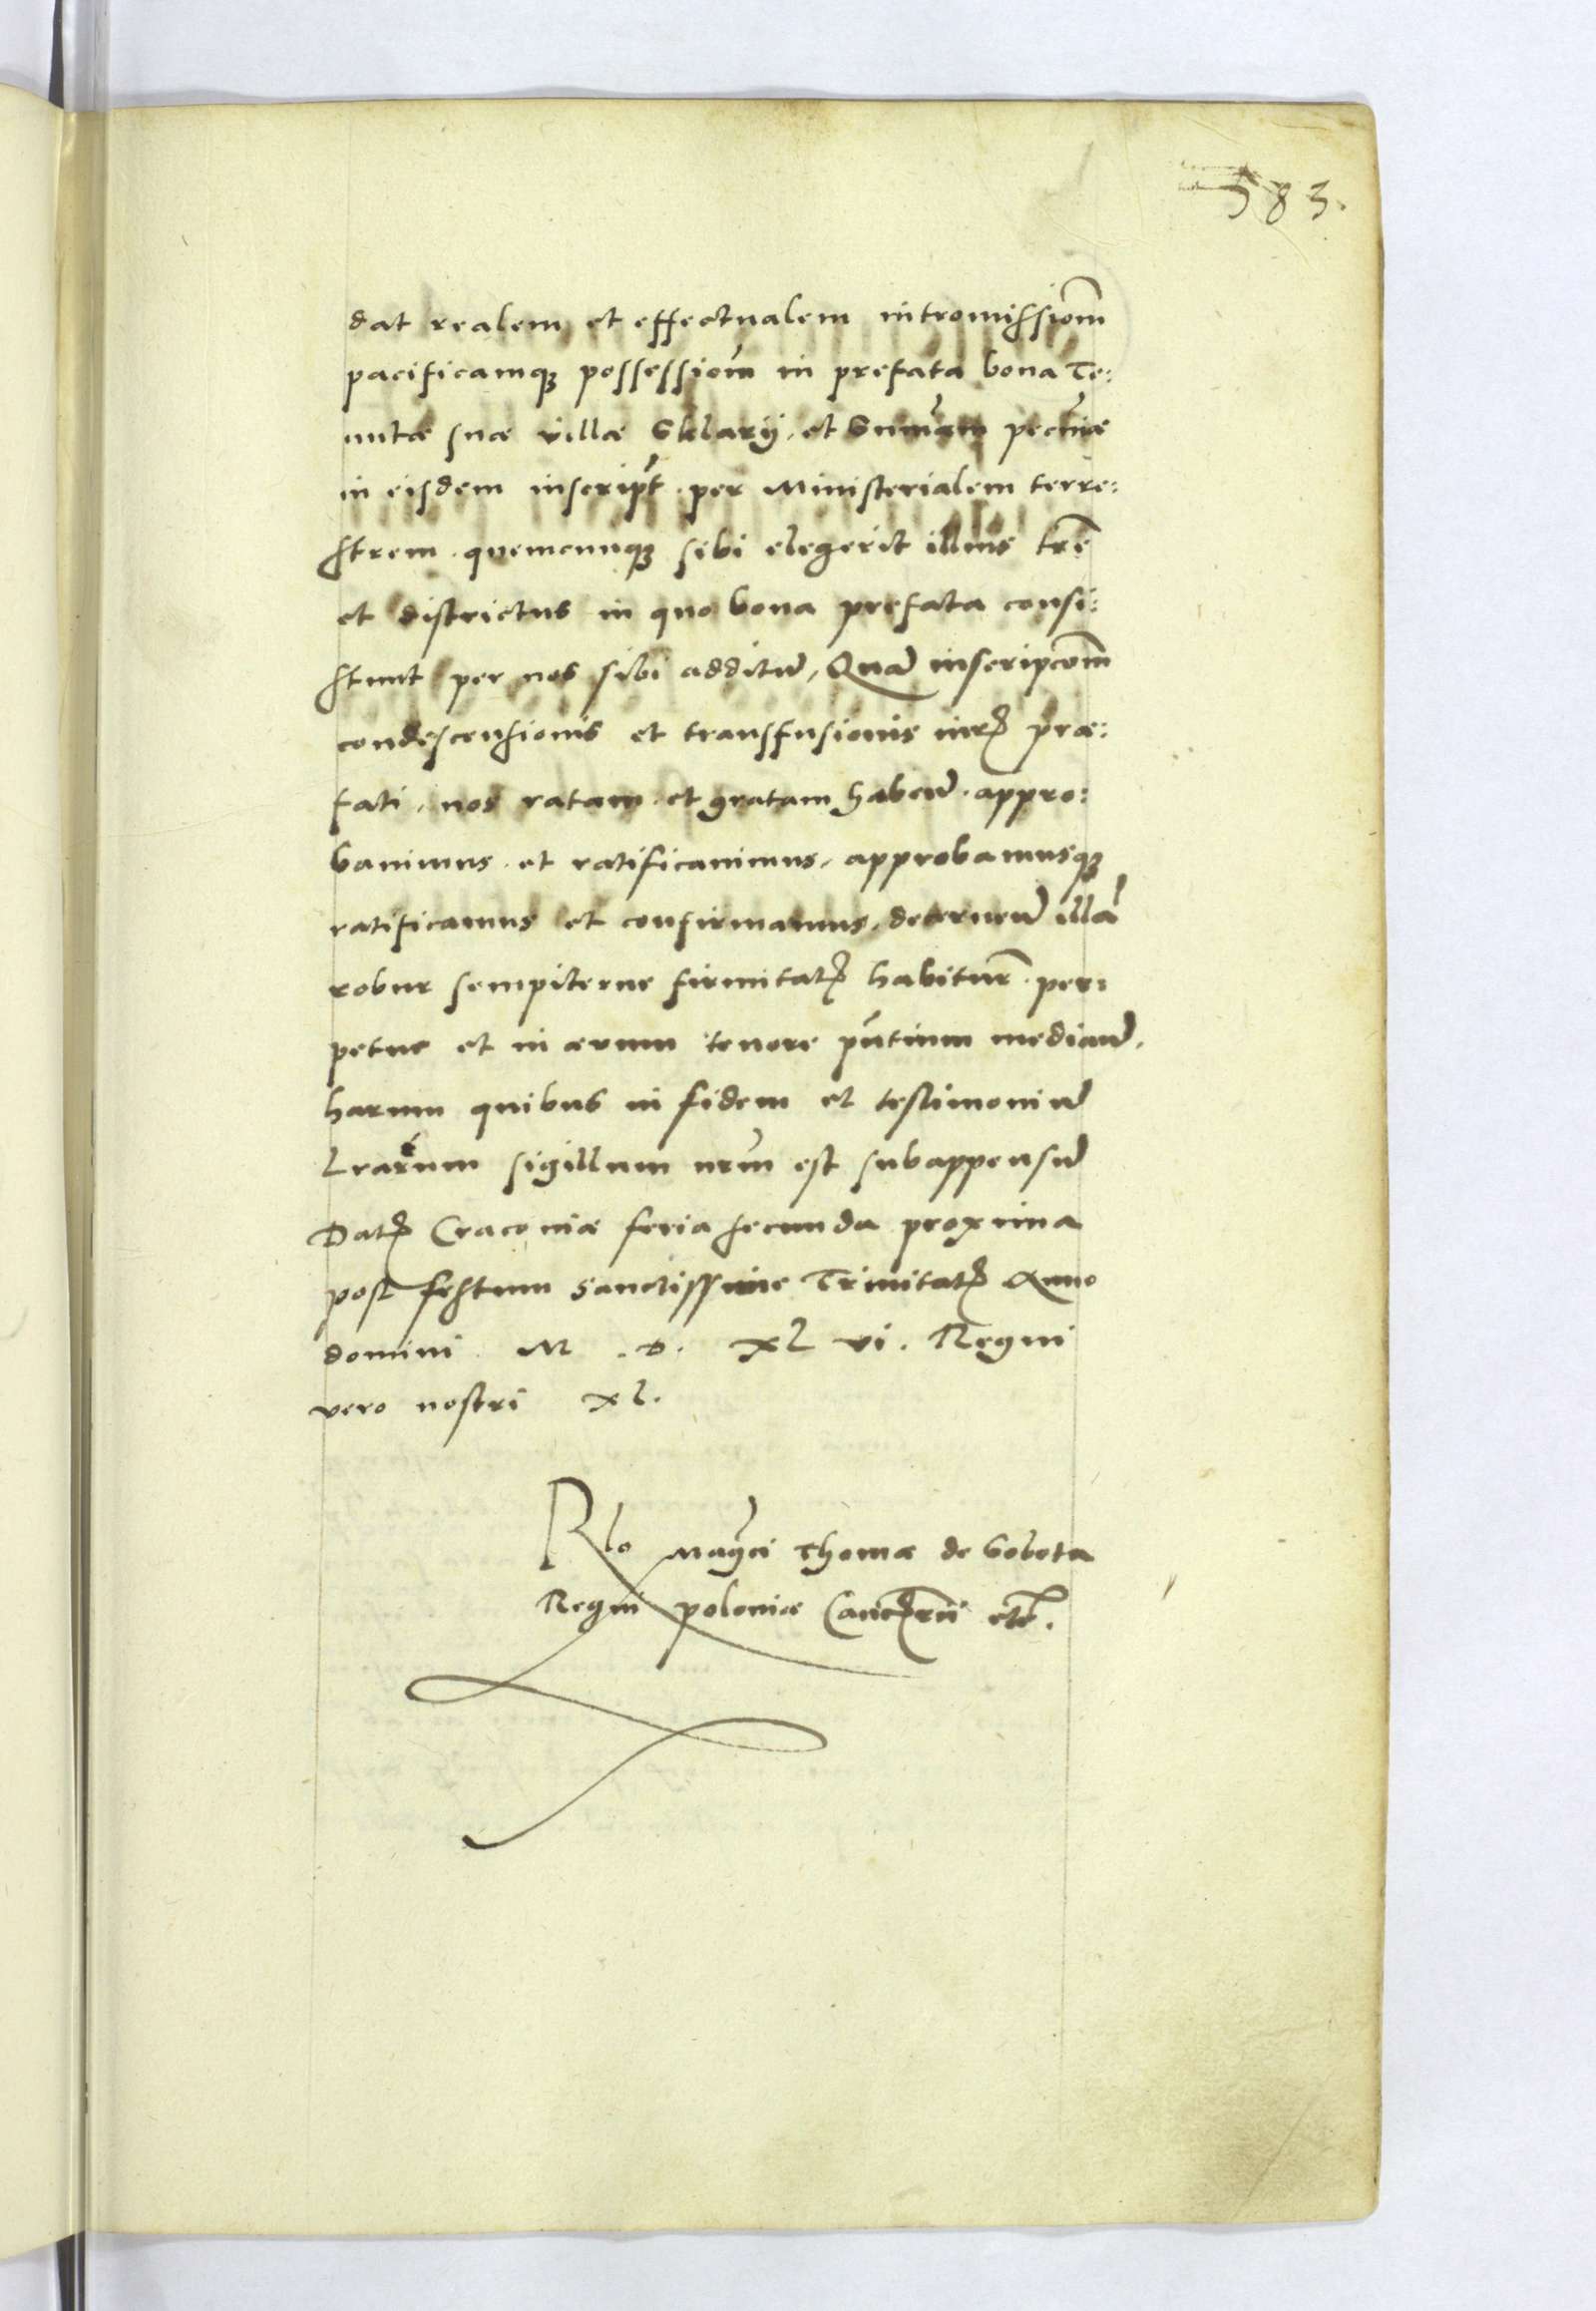 583.
dat realem et effectualem intromissiom̃
pacificamqȝ possessiom̃ in prefata bona Te:
nutæ suæ villæ Sklarÿ, et Sum̃am pecũiæ
in eisdem inscript̃ per Ministerialem terre:
strem quemcunqȝ sibi elegerit illius trẽ
et districtus in quo bona prefata consi:
stunt per nos sibi additũ, Quã inscripcom̃
condescensionis et transfusionis iurꝭ præ:
fati, nos ratam et gratam habeñ appro:
bauimus et ratificauimus, approbamusqȝ
ratificamus et confirmamus, decerneñ illã
robur sempiterne firmitatꝭ habitur̃ per:
petue et in æuum tenore pñtium mediañ.
harum quibus in fidem et testimoniũ
Lrarum sigillum nrũm est subappensũ
Datꝭ Cracoviæ feria secunda proxima
post festum Sanctissime Trinitatꝭ Anno
domini M .D. XL vi. Regni
vero nostri xl.
Rlo Magc̃i Thomæ de Sobota
Regni poloniæ Cancꝭrii etc̃.